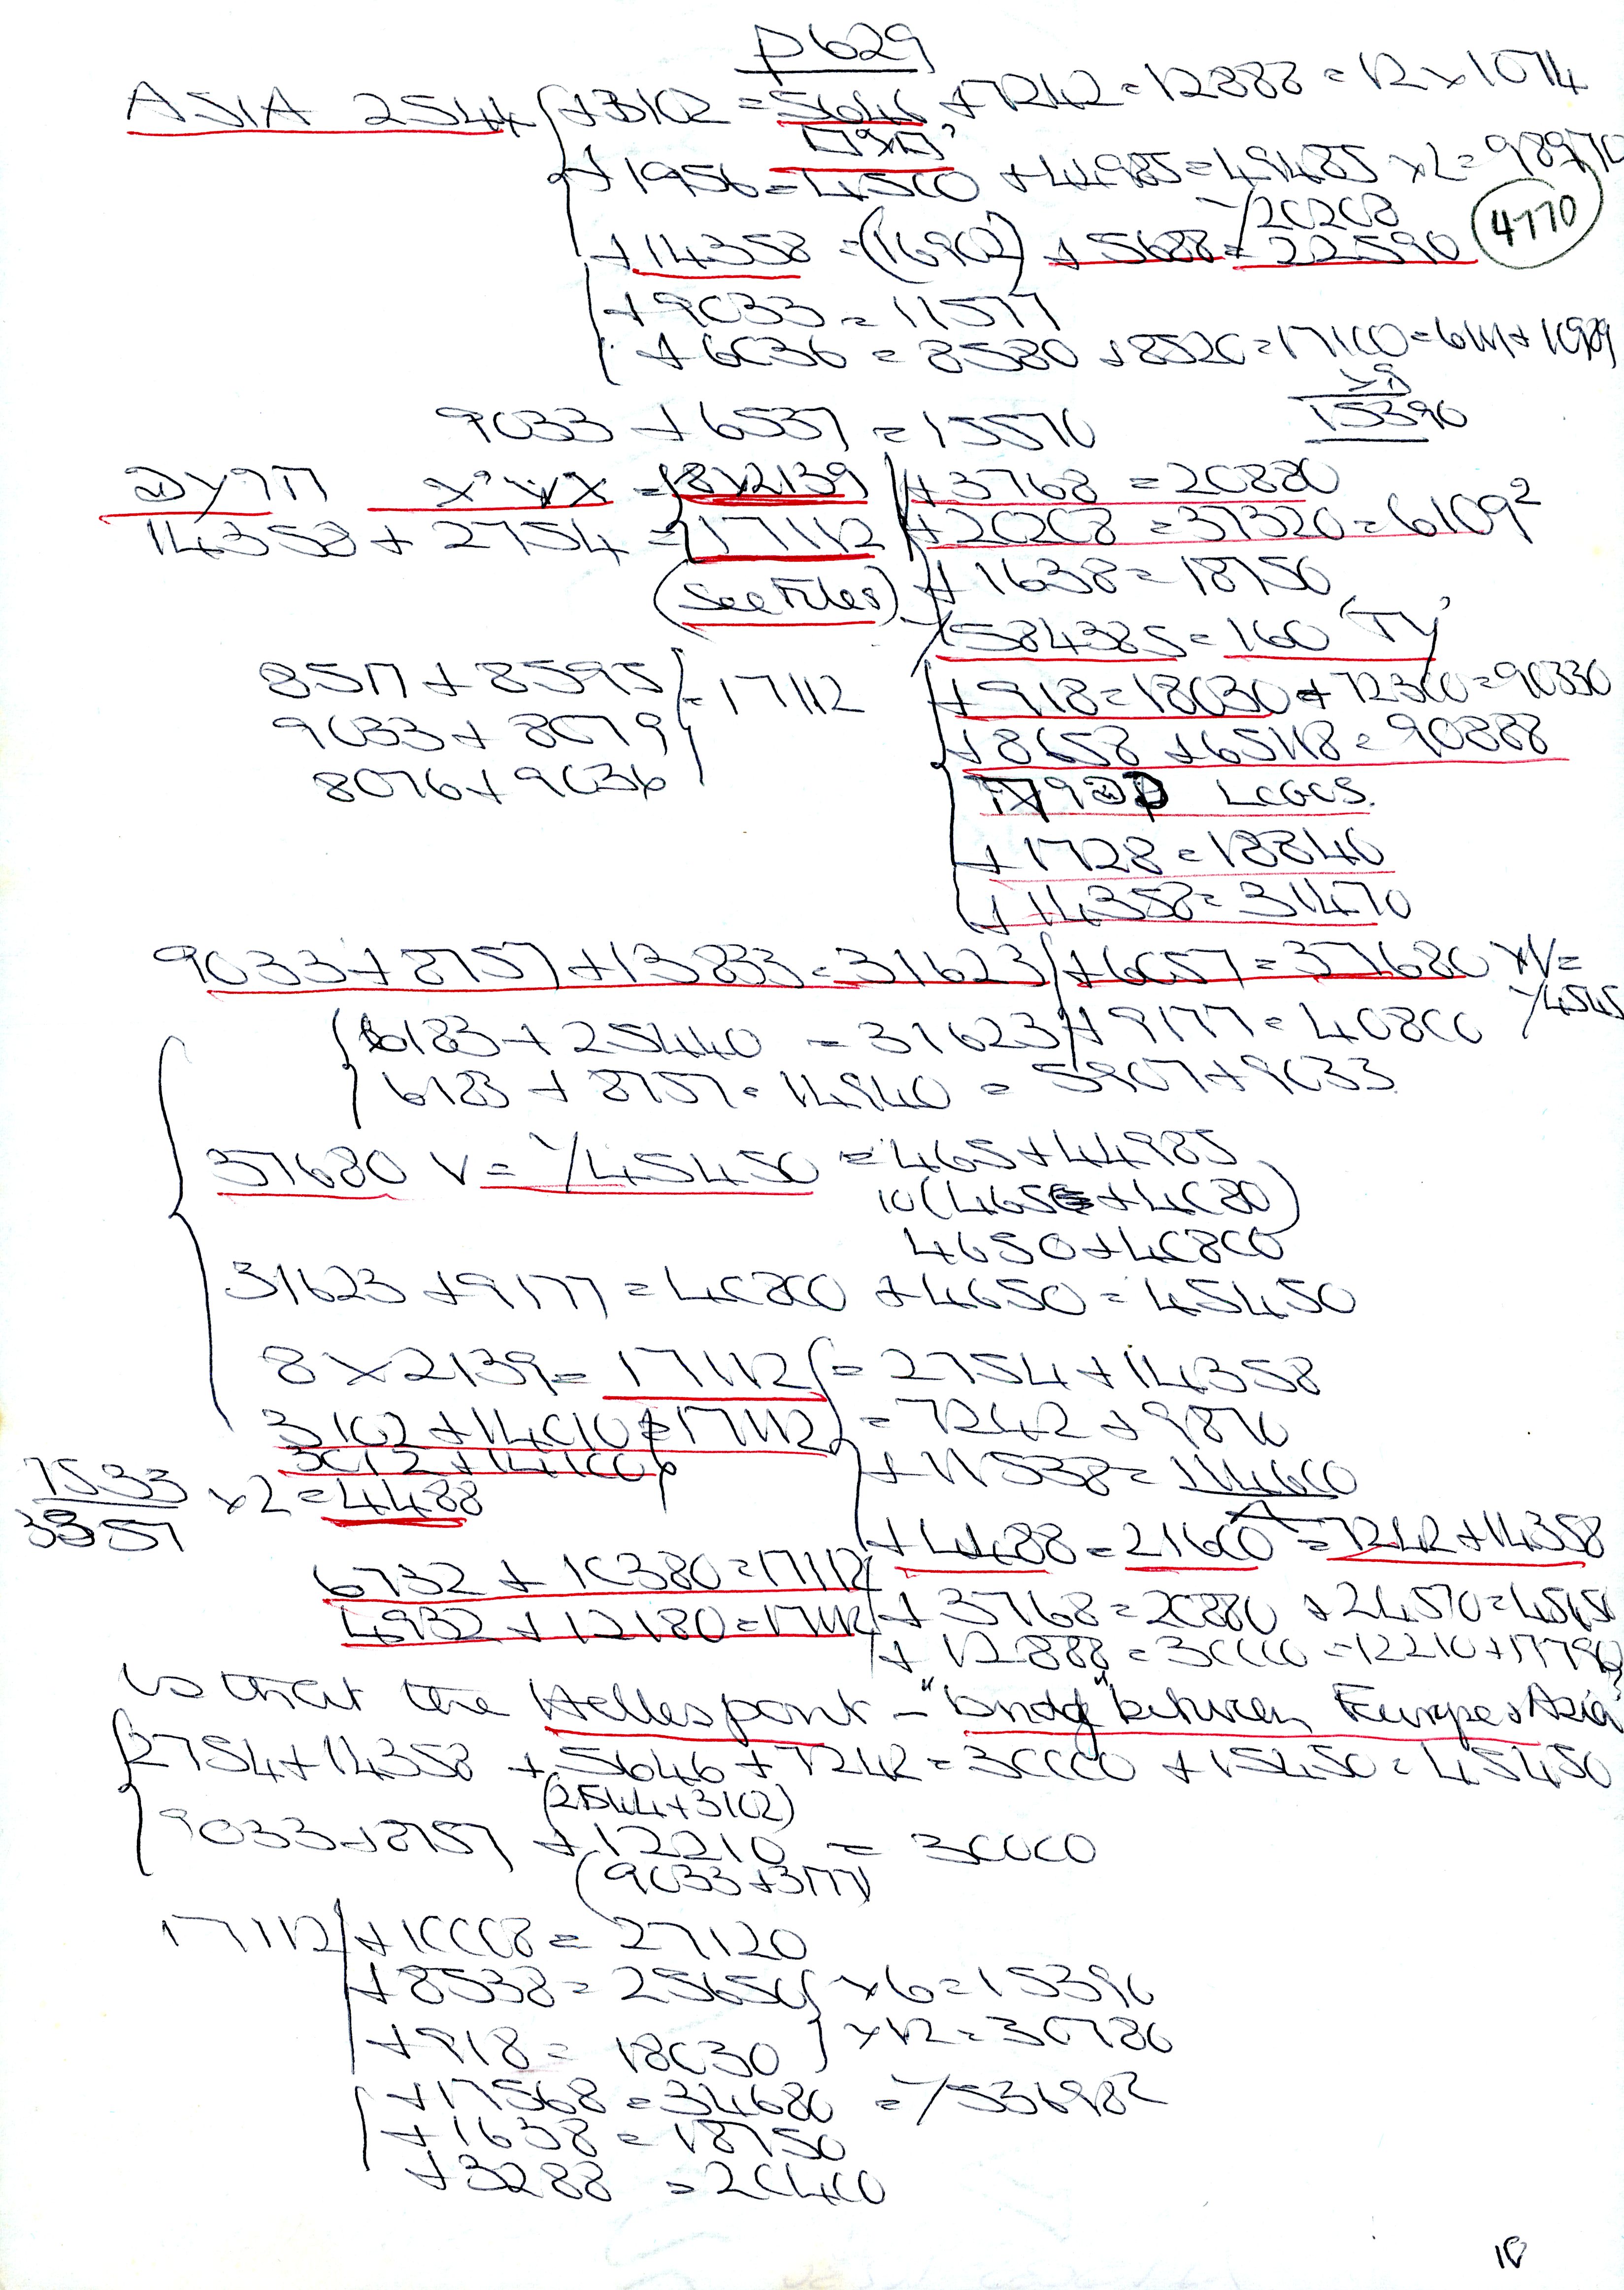 p629
ASIA 2544 +3102 = 5646 + 7242 = 12888 = 12 x 1074
+ 1956 = 4500 + 44985 = 49485 x 2 = 98970
√20208
+ 14358 = (16902) + 5688 = 22590
4770
+ 9033 = 11577
+ 6036 = 8580 + 8520 = 17100 = 6111 + 10989
x 9
15390
9033 + 6537 = 15570
= 8 x 2139 + 3768 = 20880
14358 + 2754 = 17112 + 20208 = 37320 = 6109²
(see Files) + 1638 = 18750
√584385 = 160 'TY'
8517 + 8595 + 918 = 18030 + 72300 = 90330
9033 + 8079 = 17112 + 8658 + 65118 = 90888
8076 + 9036
LOGOS.
+ 1728 = 18840
+ 14358 = 31470
9033 + 8757 + 13833 = 31623 + 6057 = 37680 x V =
√4545
6183 + 25440 = 31623 + 9177 = 40800
6183 + 8757 = 14940 = 5907 + 9033
37680 V = √45450 = 465 + 44985
10(465 + 4080)
4650 + 40800
31623 + 9177 = 40800 + 4650 = 45450
8 x 2139 = 17112 = 2754 + 14358
3102 + 14010 = 17112 = 7242 + 9870
3012 + 14100
7533 x 2 = 4488
+ 4488 = 21600 = 7242 + 14358
6732 + 10380 = 17112
4932 + 12180 = 17112 + 3768 = 20880 + 24570 = 45450
+ 12888 = 30000 = 12210 + 17790
is that the Hellespont - "bridge" between Europe & Asia?
2754 + 14358 + 5646 + 7242 = 30000 + 15450 = 45450
(2544 + 3102)
9033 + 8757 + 12210 = 30000
(9033 + 3177)
17112 + 10008 = 27120
+ 8538 = 25650 x 6 = 15390
+ 918 = 18030 x 12 = 30780
+ 17568 = 34680 = √536982
+ 1638 = 18750
+ 3288 = 20400
10